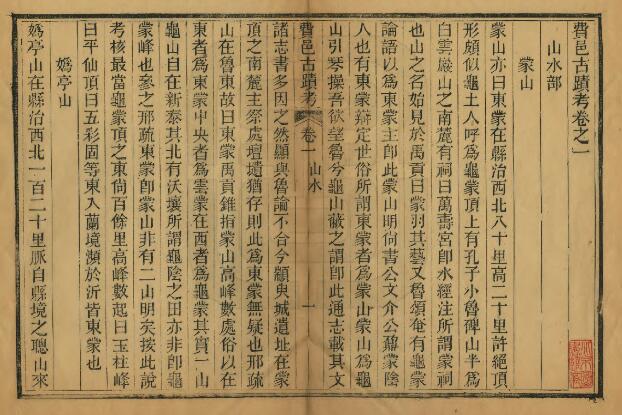 費邑古蹟考卷之一
山水部
蒙山
蒙山亦曰東蒙在縣治西北八十里高二十里許絕頂
形頗似龜土人呼爲龜蒙頂上有孔子小魯碑山半爲
白雲巖山之南麓有祠曰萬壽宮卽水經注所謂蒙祠
也山之名始見於禹貢曰蒙羽其藝又魯頌奄有龜蒙
論語以爲東蒙主卽此蒙山明尚書公文介公鼐蒙陰
人也有東蒙辯定世俗所謂東蒙者爲蒙山蒙山爲龜
山引琴操吾欲望魯兮龜山蔽之謂卽此通志載其文
費邑古蹟考 卷一 山水 一
諸志書多因之然顯與魯論不合今顓臾城遺址在蒙
頂之南麓主祭處壇壝猶存則此爲東蒙無疑也邢疏
山在魯東故曰東蒙禹貢錐指蒙山高峰數處俗以在
東者爲東蒙中央者爲雲蒙在西者爲龜蒙其實一山
龜山自在新泰其北有沃壤所謂龜陰之田亦非卽龜
蒙峰也參之邢疏東蒙卽蒙山非有二山明矣按此說
考核最當龜蒙頂之東尚百餘里高峰數起曰玉柱峰
曰平仙頂曰五彩固等東入蘭境瀕於沂皆東蒙也
嬀亭山
嬀亭山在縣治西北一百二十里脈自縣境之聰山來